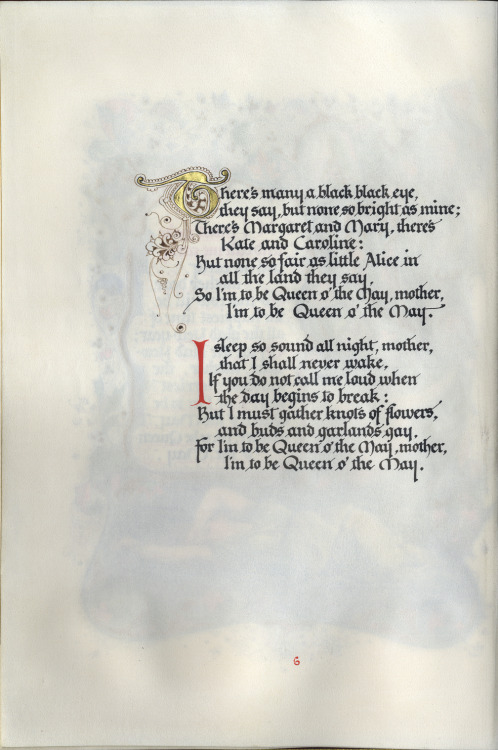 There's many a black black eye,
they say, but none so bright as mine;
There's Margaret and Mary, there's
Kate and Caroline:
But none so fair as little Alice in
all the land they say,
So I'm to be Queen o' the May, mother,
I'm to be Queen o' the May.
I sleep so sound all night, mother,
that I shall never wake,
If you do not call me loud when
the day begins to break:
But I must gather knots of flowers,
and buds and garlands gay,
For I'm to be Queen o' the May, mother,
I'm to be Queen o' the May.
6